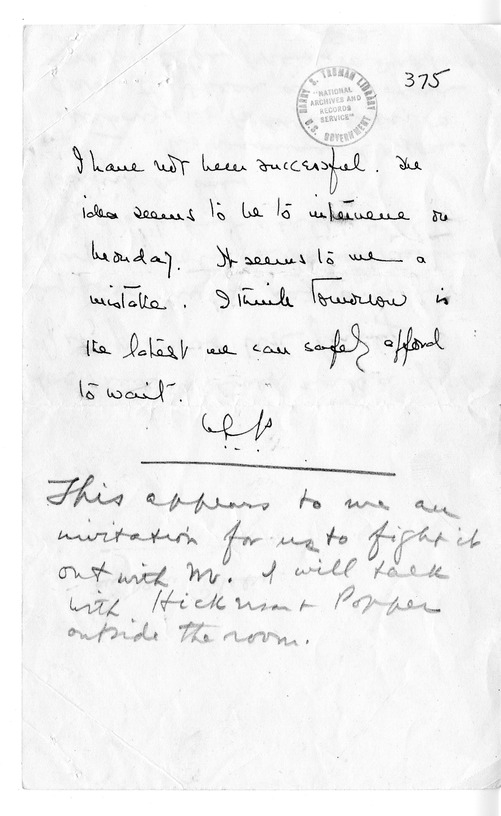 375
HARRY S. TRUMAN LIBRARY
"NATIONAL
ARCHIVES AND
RECORDS
SERVICE"
U.S. GOVERNMENT
I have not been successful. The
idea seems to be to intervene on
Monday. It seems to me a
mistake. I think Tomorrow is
the latest we can safely afford
to wait.
This appears to me an
invitation for us to fight it
out with Mr. I will talk
with Hickerson + Popper
outside the room.